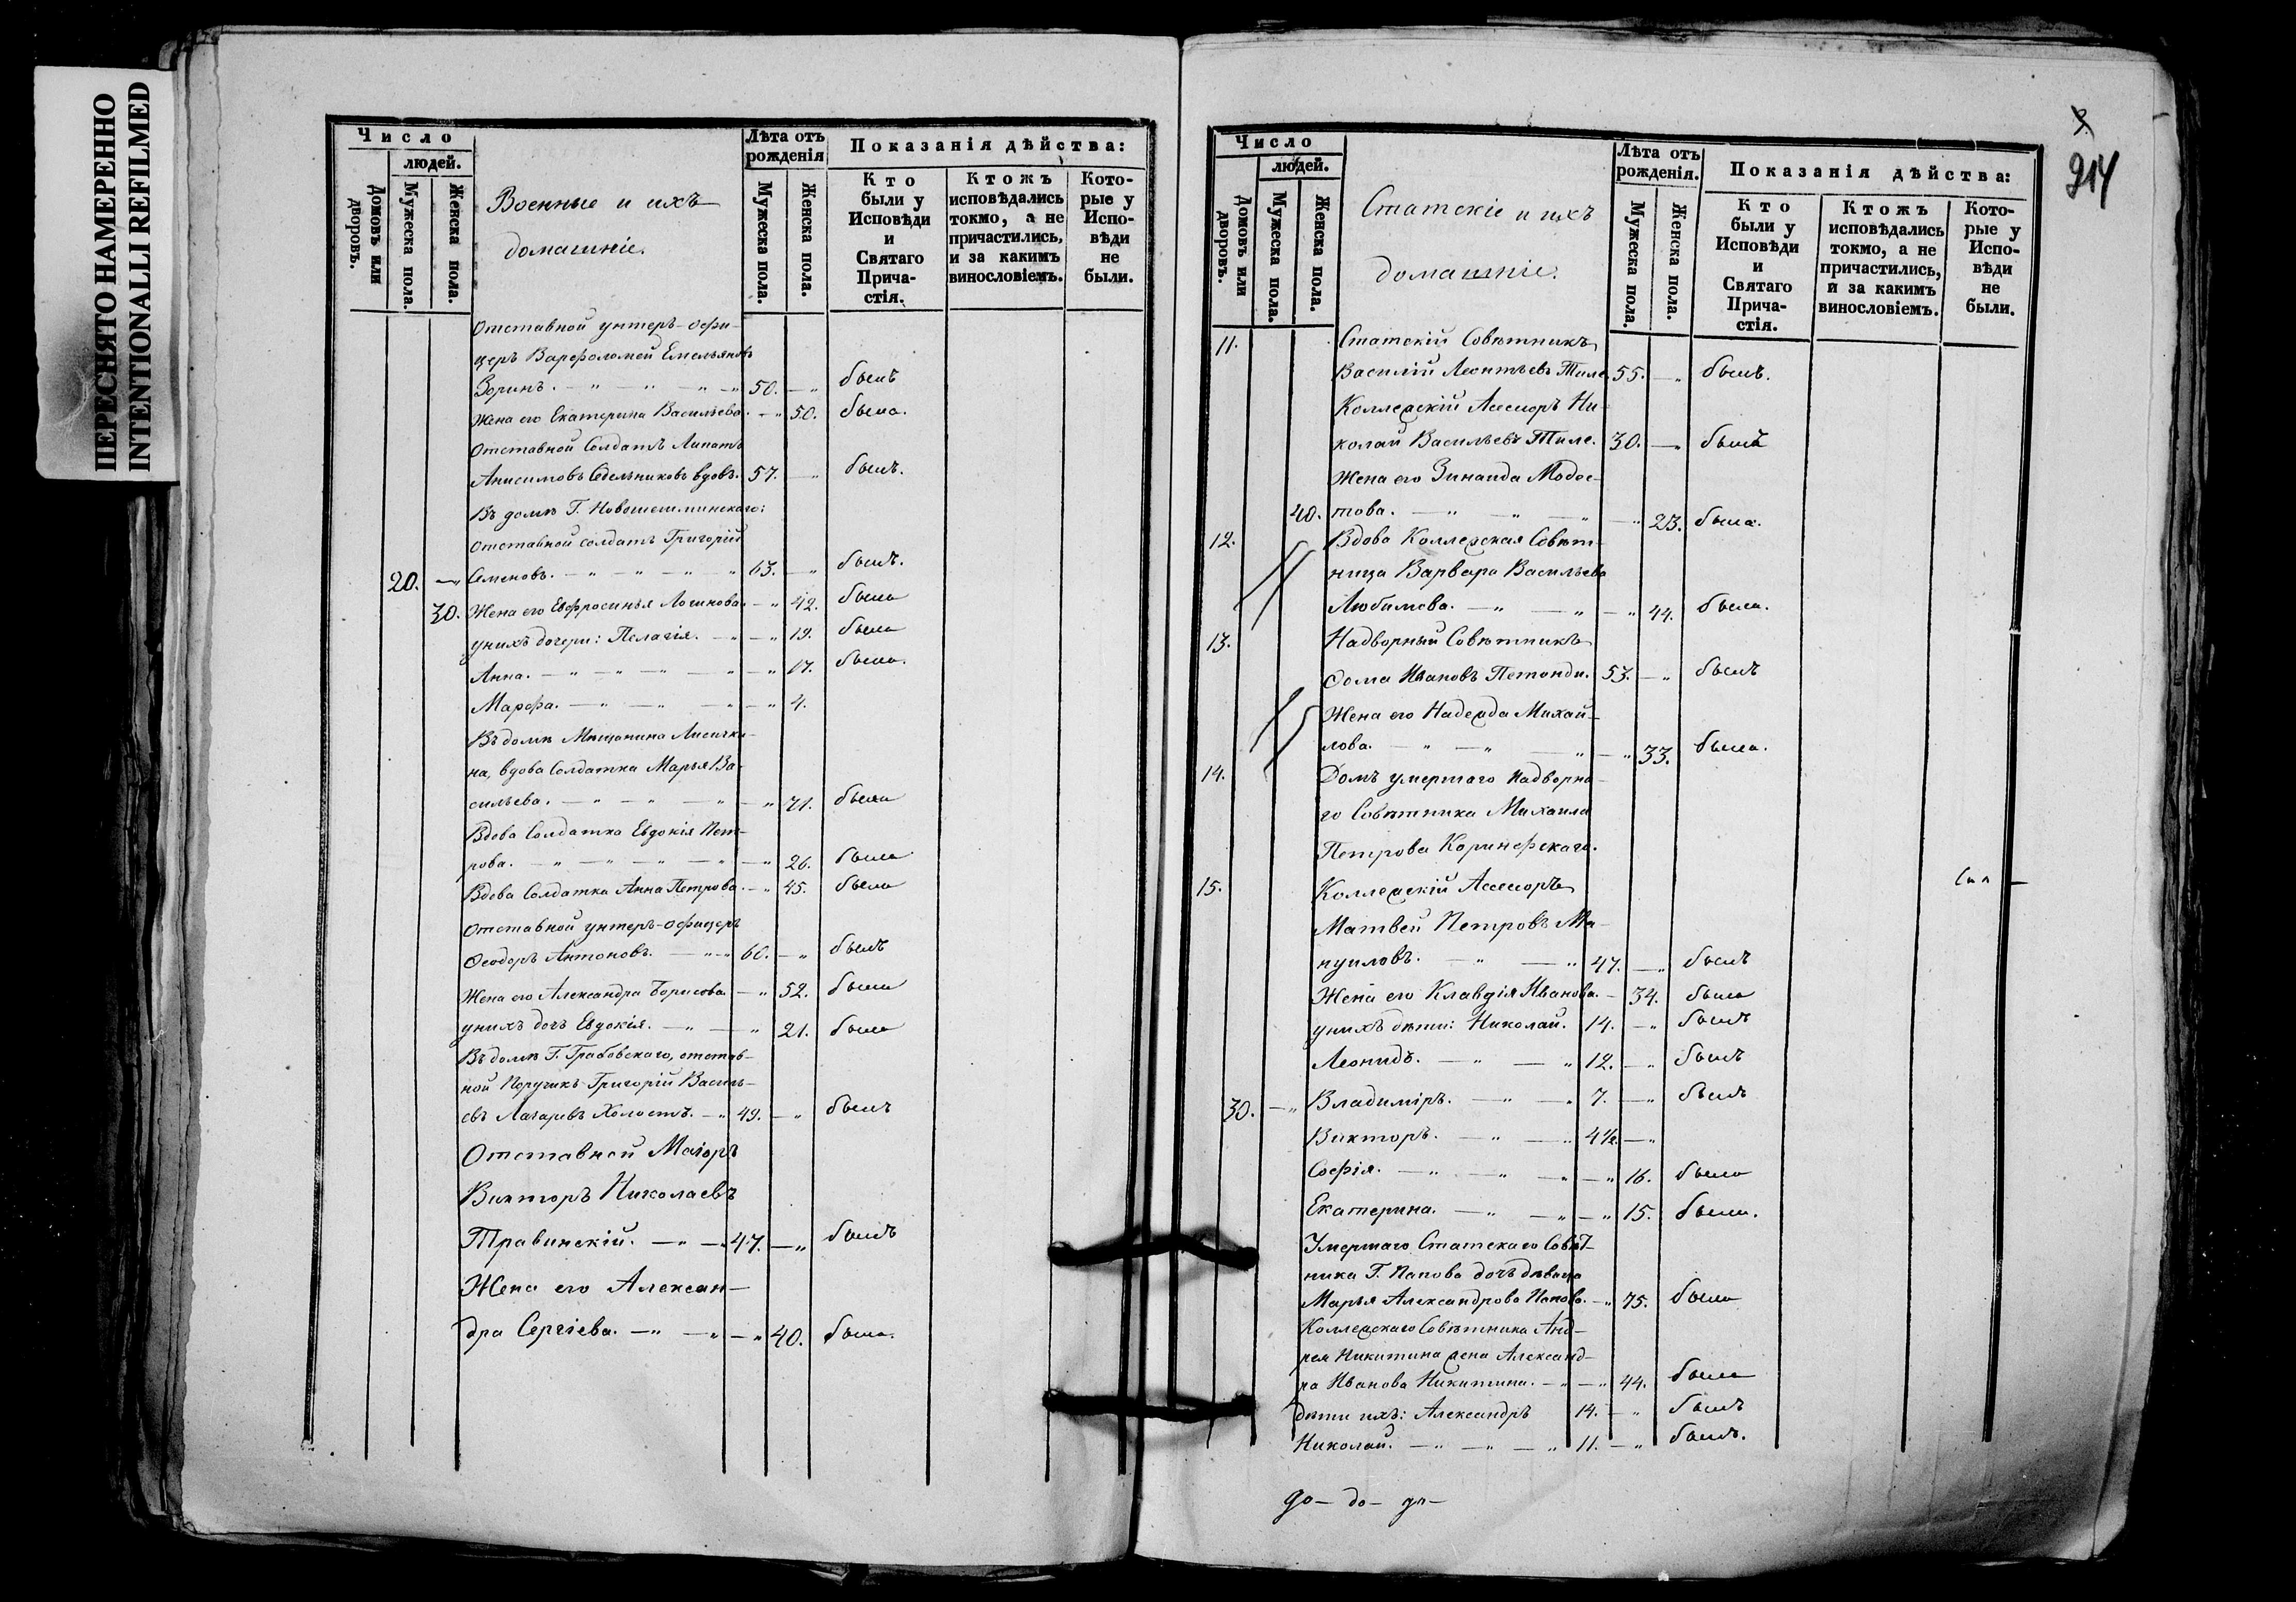 ПЕРЕСНЯТО НАМЕРЕННО
INTENTIONALLI REFILMED
Число
людей.
Домовъ или дворовъ.
Мужеска пола.
Женска пола.
Военные и ихъ
домашніе.
Лѣта отъ рожденія
Мужеска пола.
Женска пола.
Показанія дѣйства:
Кто были у Исповѣди и Святаго Прича-стія.
Ктожъ исповѣдались токмо, а не причастились, и за какимъ винословіемъ.
Кото-рые у Испо-вѣди не были.
Отставной унтеръ-офи-
церъ Варфоломей Емельяновъ
Зоринъ. — " — " — " — " 50. — " былъ
Жена его Екатерина Васильева. — " 50. была.
Отставной Солдатъ Липатъ
Анисимовъ Седельниковъ вдовъ. 57. — " былъ.
Въ домѣ Г. Новошешминскаго:
Отставной солдатъ Григорій
20. — " Семеновъ. — " — " — " — " 63. — " былъ.
30. Жена его Евфросинья Логинова. — " 42. была
у нихъ дочери: Пелагія. — " — " 19. была
Анна. — " — " — " — " — " 17. была.
Марфа. — " — " — " — " 4.
Въ домѣ Мѣщанина Лисички-
на, вдова Солдатка Марья Ва-
сильева. — " — " — " — " 71. была
Вдова Солдатка Евдокія Пет-
рова. — " — " — " — " — " 26. была
Вдова Солдатка Анна Петрова. — " 45. была
Отставной унтеръ-офицеръ
Ѳеодоръ Антоновъ. — " — " 60. — " былъ
Жена его Александра Борисова — " 52. была
у нихъ дочь Евдокія. — " — " 21. была
Въ домѣ Г. Грабовскаго, отстав-
ной Поручикъ Григорій Василь-
евъ Лагаревъ Холостъ. — " 49. — " былъ
Отставной Маіоръ
Викторъ Николаевъ
Травинскій. — " — " 47. — " былъ
Жена его Алексан-
дра Сергіева. — " — " — " 40. была.
214
Число
людей.
Домовъ или дворовъ.
Мужеска пола.
Женска пола.
Статскіе и ихъ
домашніе.
Лѣта отъ рожденія.
Мужеска пола.
Женска пола.
Показанія дѣйства:
Кто были у Исповѣди и Святаго Прича-стія.
Ктожъ исповѣдались токмо, а не причастились, и за какимъ винословіемъ.
Кото-рые у Испо-вѣди не были.
11. Статскій Совѣтникъ
Василій Леонтьевъ Тиле 55. — " былъ.
Коллежскій Асессоръ Ни-
колай Васильевъ Тиле. 30. — " былъ
Жена его Зинаида Модес-
40. това. — " " — " — " 23. была.
12. Вдова Коллежская Совѣт-
ница Варвара Васильева
Любимова. — " — " — " 44. была.
13. Надворный Совѣтникъ
Ѳома Ивановъ Петонди. 53. — " былъ
Жена его Надежда Михай-
лова. — " — " — " — " 33. была.
14. Домъ умершаго Надворна-
го Совѣтника Михаила
Петрова Коринфскаго.
15. Коллежскій Асессоръ
Матвей Петровъ Ма-
нуиловъ. — " — " 47. — " былъ
Жена его Клавдія Иванова. — 34. была
у нихъ дѣти: Николай. 14. — " былъ
Леонидъ. — " — " 12. — " былъ
30. — " Владиміръ. — " — " 7. — " былъ
Викторъ. — " — " 4½. — "
Софія. — " — " — " — " 16. была
Екатерина. — " — " — " 15. была.
Умершаго Статскаго Совѣт-
ника Г. Панова дочь дѣвица
Марья Александрова Панова. — " 75. была
Коллежскаго Совѣтника Анд-
рея Никитина жена Александ-
ра Иванова Никитина. — " — " 44. была
Дѣти ихъ: Александръ 14. — " былъ
Николай. — " — " — " 11. — " былъ.